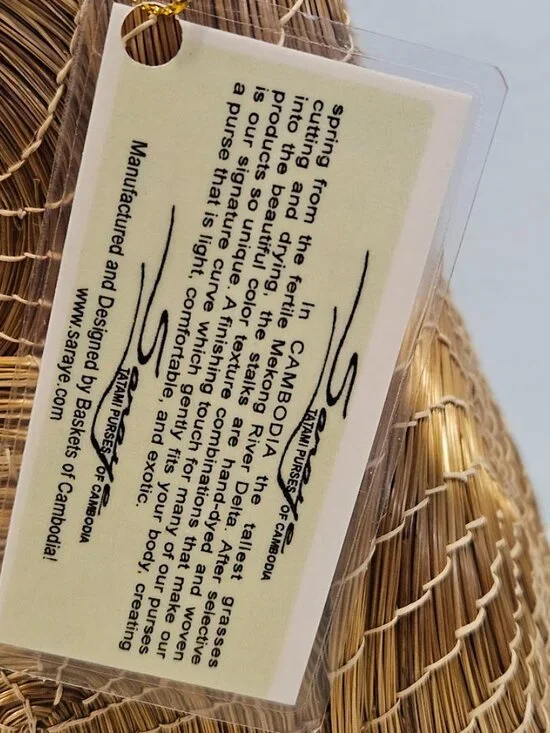 Saraye
TATAMI PURSES OF CAMBODIA
In CAMBODIA the tallest grasses
spring from the fertile Mekong River Delta. After selective
cutting and drying, the stalks are hand-dyed and woven
into the beautiful color texture combinations that make our
products so unique. A finishing touch for many of our purses
is our signature curve which gently fits your body, creating
a purse that is light, comfortable, and exotic.
Saraye
TATAMI PURSES OF CAMBODIA
Manufactured and Designed by Baskets of Cambodia!
www.saraye.com